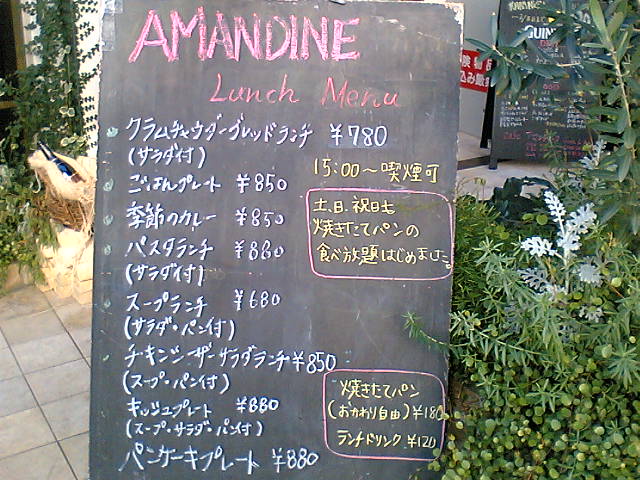 AMANDINE
Lunch Menu
クラムチャウダーブレッドランチ ¥780
(サラダ付)
15:00〜喫煙可
ごはんプレート ¥850
季節のカレー ¥850
パスタランチ ¥880
(サラダ付)
土日祝日も
焼きたてパンの
食べ放題はじめました。
スープランチ ¥680
(サラダ・パン付)
チキンシーザーサラダランチ ¥850
(スープ・パン付)
キッシュプレート ¥880
(スープ・サラダ・パン付)
パンケーキプレート ¥880
焼きたてパン
(おかわり自由) ¥180
ランチドリンク ¥120
GUIN